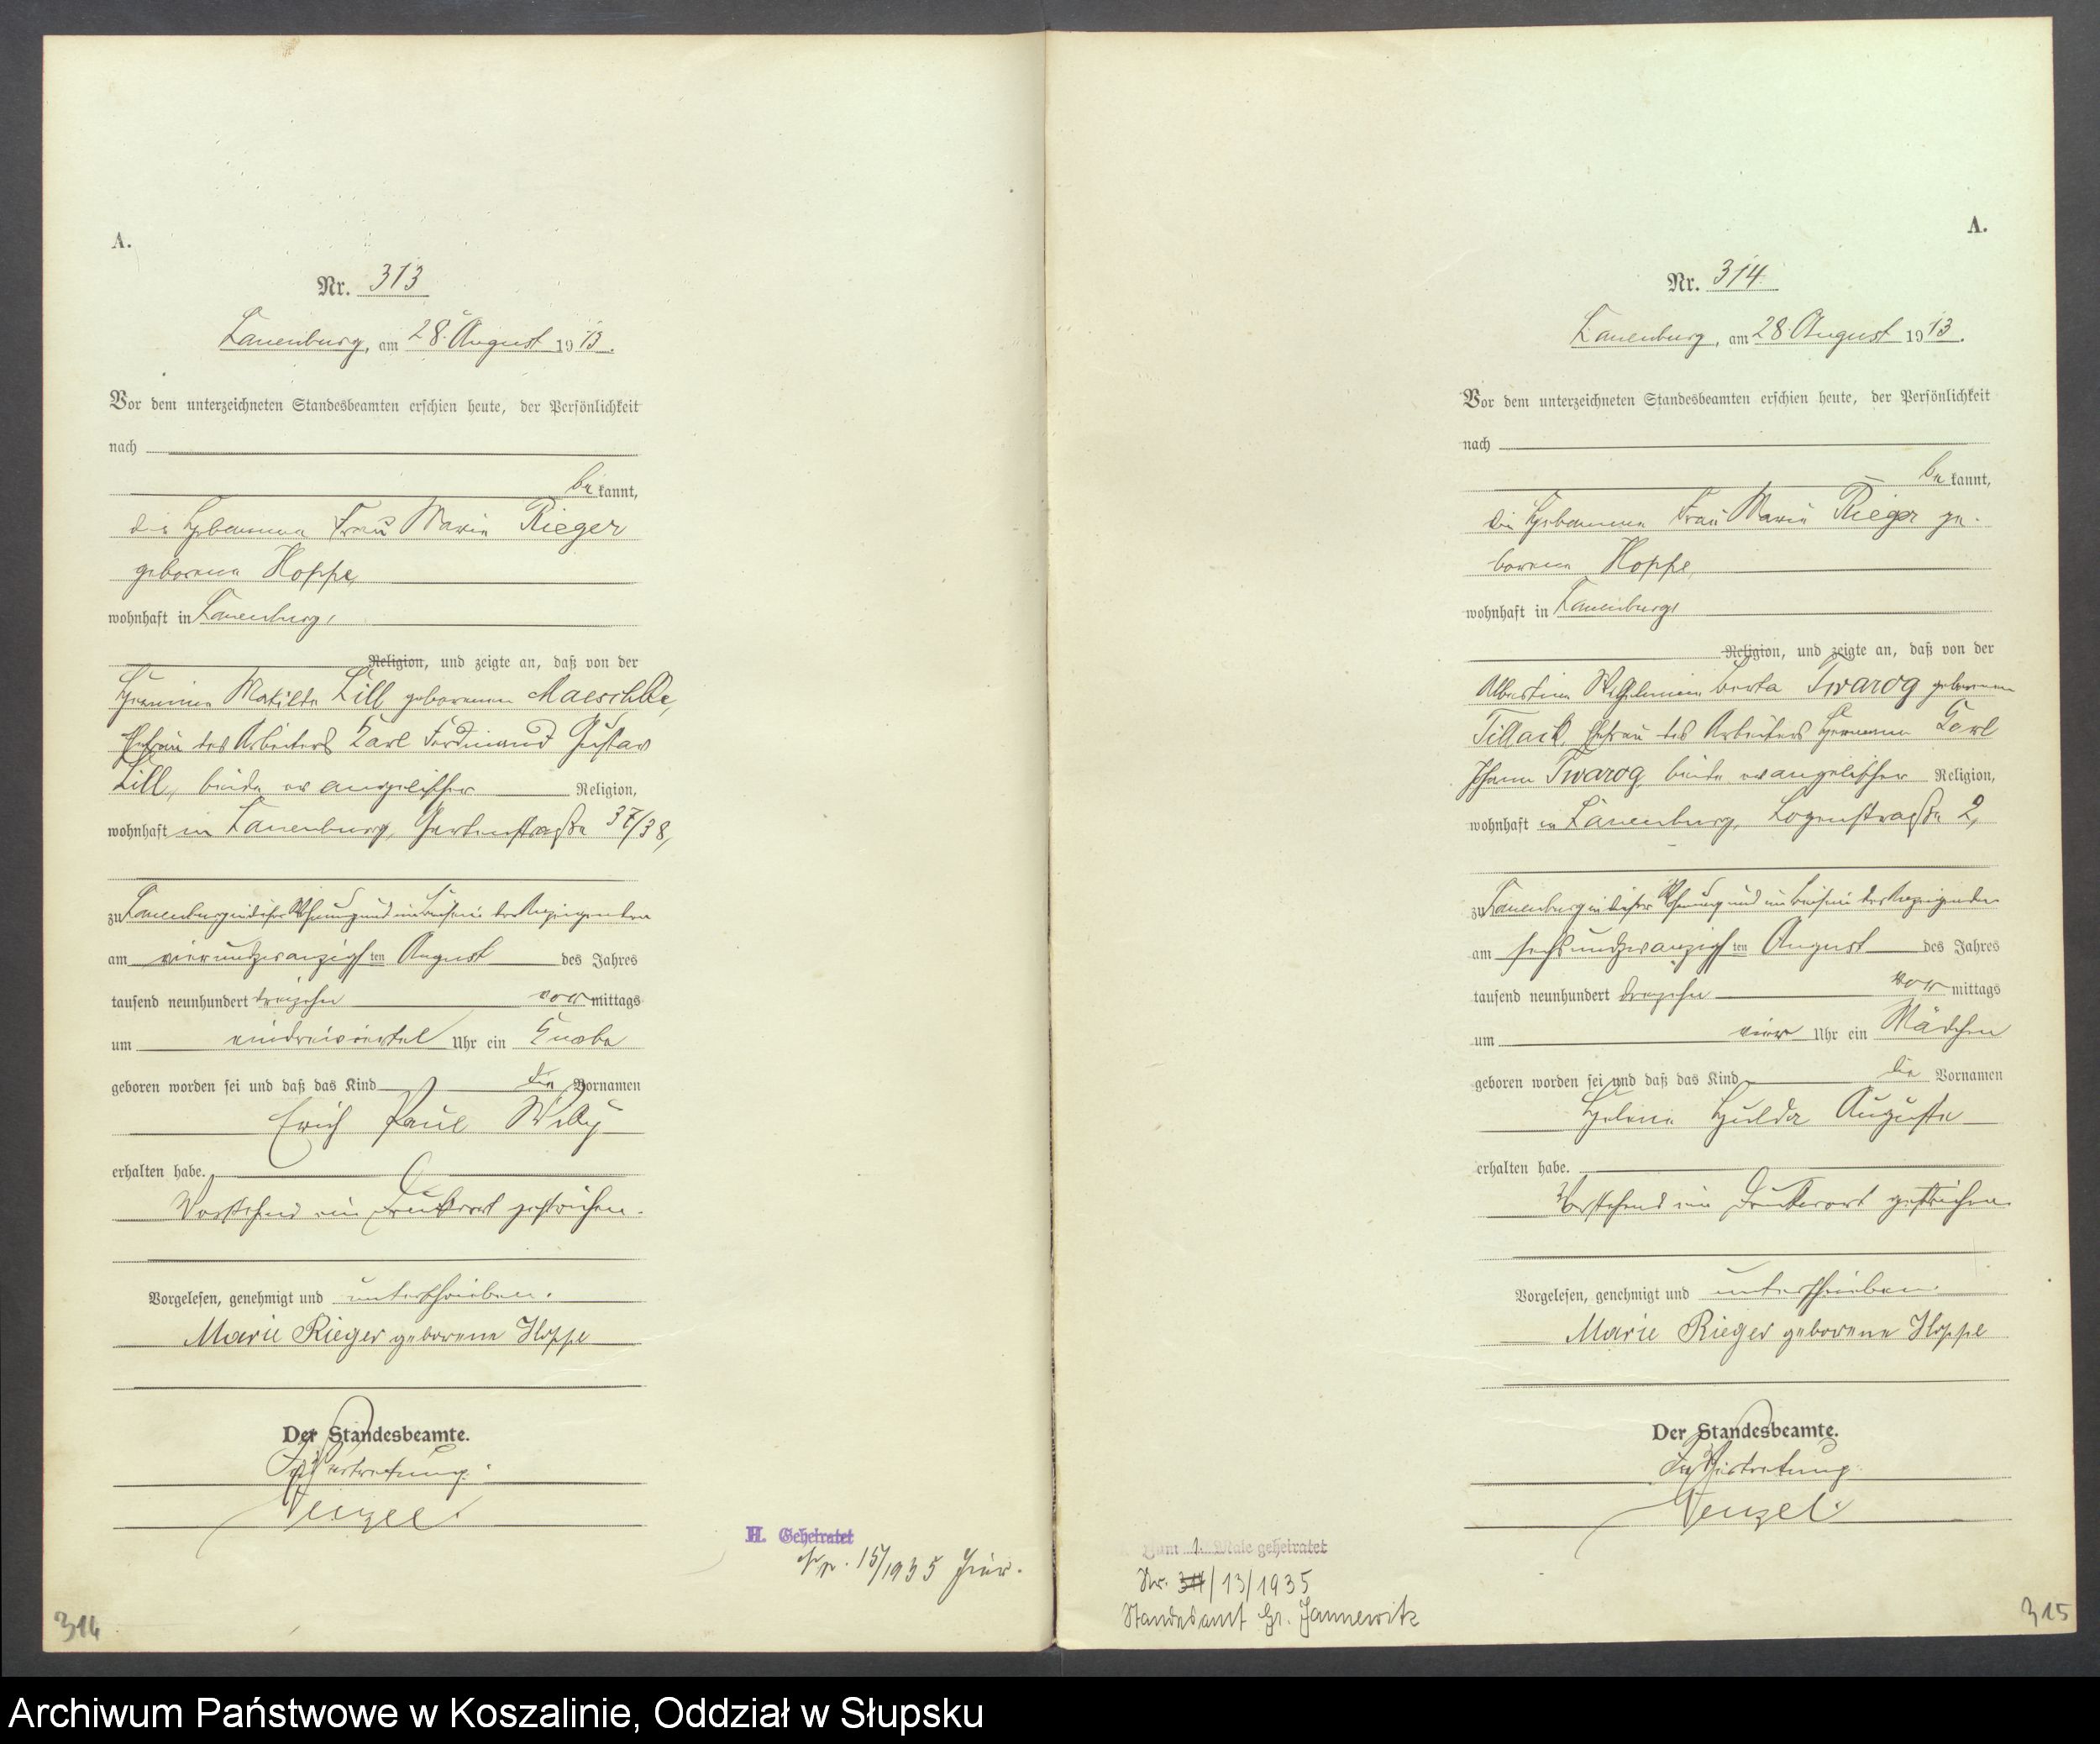 A.
Nr. 313
Lauenburg, am 28. August 1913.
Vor dem unterzeichneten Standesbeamten erschien heute, der Persönlichkeit
nach
bekannt,
die Hebamme Frau Marie Rieger
geborene Hoppe,
wohnhaft in Lauenburg,
Religion, und zeigte an, daß von der
Hermine Matilde Lill geborenen Maeschke,
Ehefrau des Arbeiters Karl Ferdinand Gustav
Lill, beide evangelischer Religion,
wohnhaft in Lauenburg, Gartenstraße 37/38,
zu Lauenburg in dieser Wohnung und im Beisein der Anzeigenden
am vierundzwanzigsten August des Jahres
tausend neunhundert dreizehn vormittags
um eindreiviertel Uhr ein Knabe
geboren worden sei und daß das Kind die Vornamen
Erich Paul Willy
erhalten habe.
Vorstehend ein Druckwort gestrichen.
Vorgelesen, genehmigt und unterschrieben.
Marie Rieger geborene Hoppe
Der Standesbeamte.
In Vertretung.
Wenzel.
H. Geheiratet
Nr. 15/1935 hier.
314
A.
Nr. 314
Lauenburg, am 28. August 1913.
Vor dem unterzeichneten Standesbeamten erschien heute, der Persönlichkeit
nach
bekannt,
die Hebamme Frau Marie Rieger ge-
borene Hoppe,
wohnhaft in Lauenburg,
Religion, und zeigte an, daß von der
Albertine Wilhelmine Berta Twarog geborenen
Tillack, Ehefrau des Arbeiters Hermann Karl
Johann Twarog, beide evangelischer Religion,
wohnhaft in Lauenburg, Logenstraße 2,
zu Lauenburg in dieser Wohnung und im Beisein der Anzeigenden
am sechsundzwanzigsten August des Jahres
tausend neunhundert dreizehn vormittags
um vier Uhr ein Mädchen
geboren worden sei und daß das Kind die Vornamen
Helene Hulda Auguste
erhalten habe.
Vorstehend ein Druckwort gestrichen.
Vorgelesen, genehmigt und unterschrieben.
Marie Rieger geborene Hoppe
Der Standesbeamte.
In Vertretung.
Wenzel.
Zum 1. Male geheiratet
Nr. 314/13/1935
Standesamt Gr. Jannewitz
315
Archiwum Państwowe w Koszalinie, Oddział w Słupsku